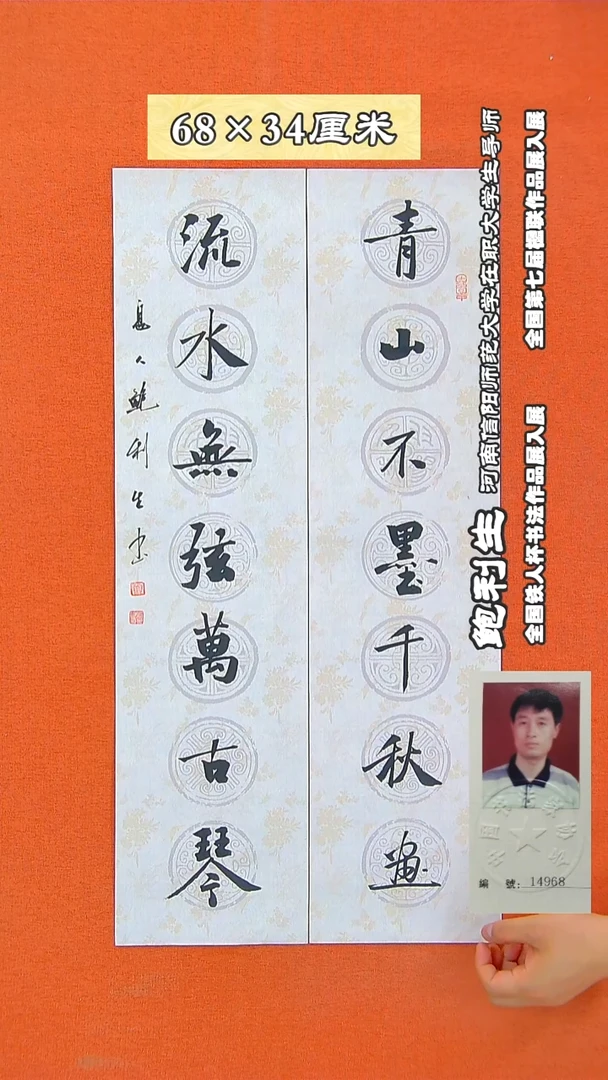 68×34厘米
青山不墨千秋画
流水無弦萬古琴
息人鲍利生书
鲍利生
河南信阳师院大学在职大学生导师
全国第七届楹联作品展入展
全国铁人杯书法作品展入展
編 號: 14968